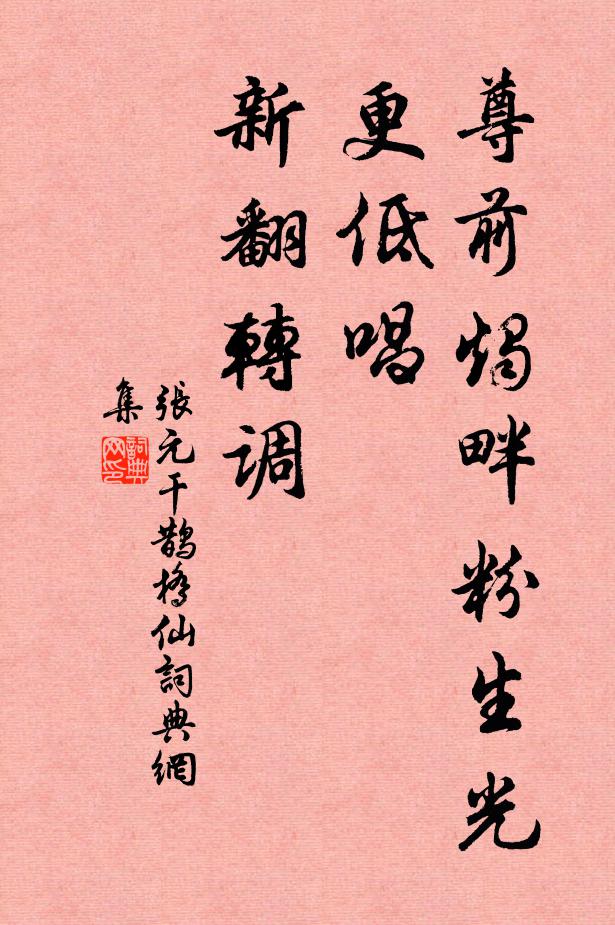 尊前燭畔粉生光
更低唱
新翻轉調
張元干鵲橋仙詞典網
集
詞典網印